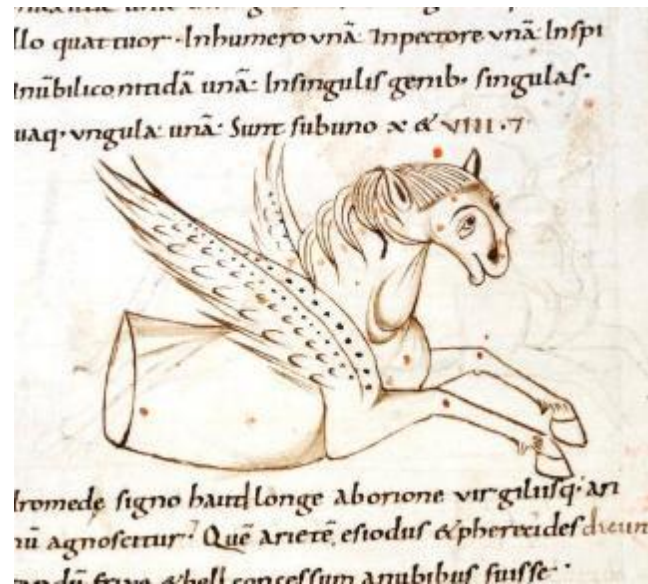 llo quattuor · Inhumero unā Inpectore unā Inspi
Inūbilico nitidā unā: Insingulis genib; singulas ·
uaq; ungula unā: Sunt subuno x & VIII · 7
dromede signo haud longe aborione virgiliisq; ari
nū agnoscitur · Quē arietē, esiodus & pherecides dicun